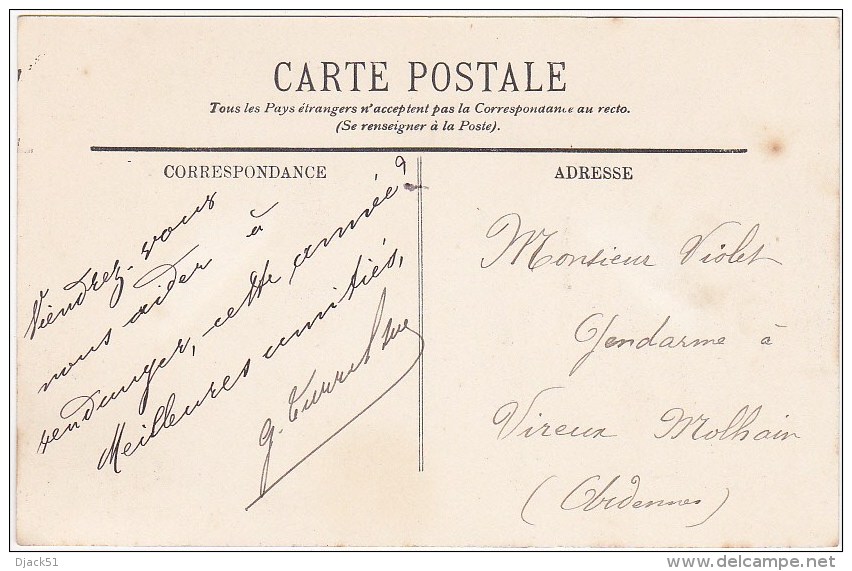 CARTE POSTALE
Tous les Pays étrangers n'acceptent pas la Correspondance au recto.
(Se renseigner à la Poste).
CORRESPONDANCE
Viendrez-vous
nous aider à
vendanger, cette année?
Meilleures amitiés,
G.
ADRESSE
Monsieur Violet
Gendarme à
Vireux Molhain
(Ardennes)
Djack51
www.delcampe.net